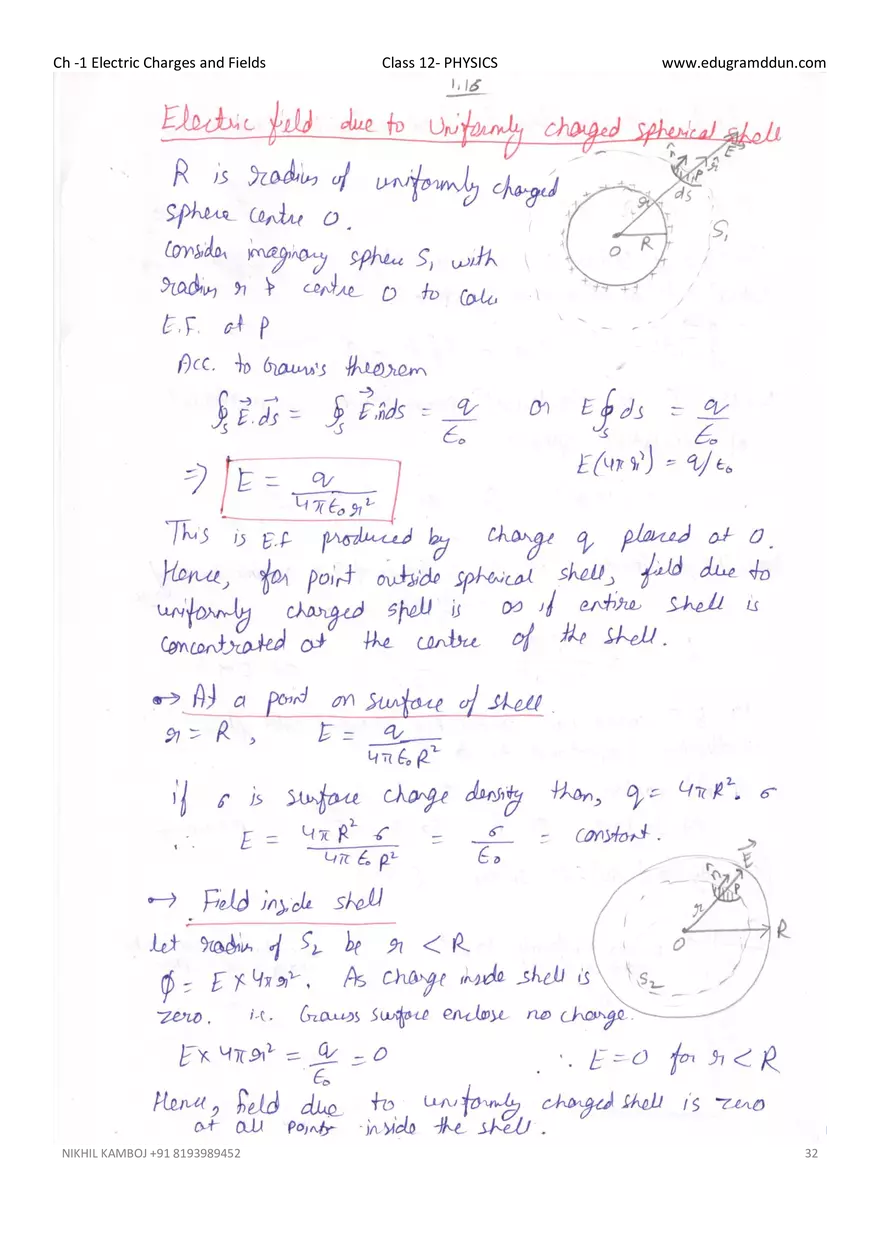 Ch -1 Electric Charges and Fields Class 12- PHYSICS www.edugramddun.com
1.16
Electric field due to Uniformly charged spherical shell
R is radius of uniformly charged
sphere centre O.
Consider imaginary sphere S₁ with
radius r & centre O to calu
E.F. at P
n̂ P r̂ E⃗
ds
r
O R
S₁
Acc. to Gauss's theorem
∮ₛ E⃗.ds⃗ = ∮ₛ E⃗.n̂ds = q/ε₀ or E∮ₛ ds = q/ε₀
E(4πr²) = q/ε₀
⇒ E = q/4πε₀r²
This is E.f produced by charge q placed at O.
Hence, for point outside spherical shell, field due to
uniformly charged spell is as if entire shell is
concentrated at the centre of the shell.
•→ At a point on surface of shell
r = R, E = q/4πε₀R²
if σ is surface charge density than, q = 4πR². σ
∴ E = 4πR² σ/4πε₀R² = σ/ε₀ = constant.
•→ Field inside shell
let radius of S₂ be r < R
ϕ = E×4πr². As charge inside shell is
zero. i.e. Gauss surface enclose no charge.
E⃗
n̂ P
r
O R
S₂
E×4πr² = q/ε₀ = 0 ∴ E=0 for r<R
Hence, field due to uniformly charged shell is zero
at all points inside the shell.
NIKHIL KAMBOJ +91 8193989452 32